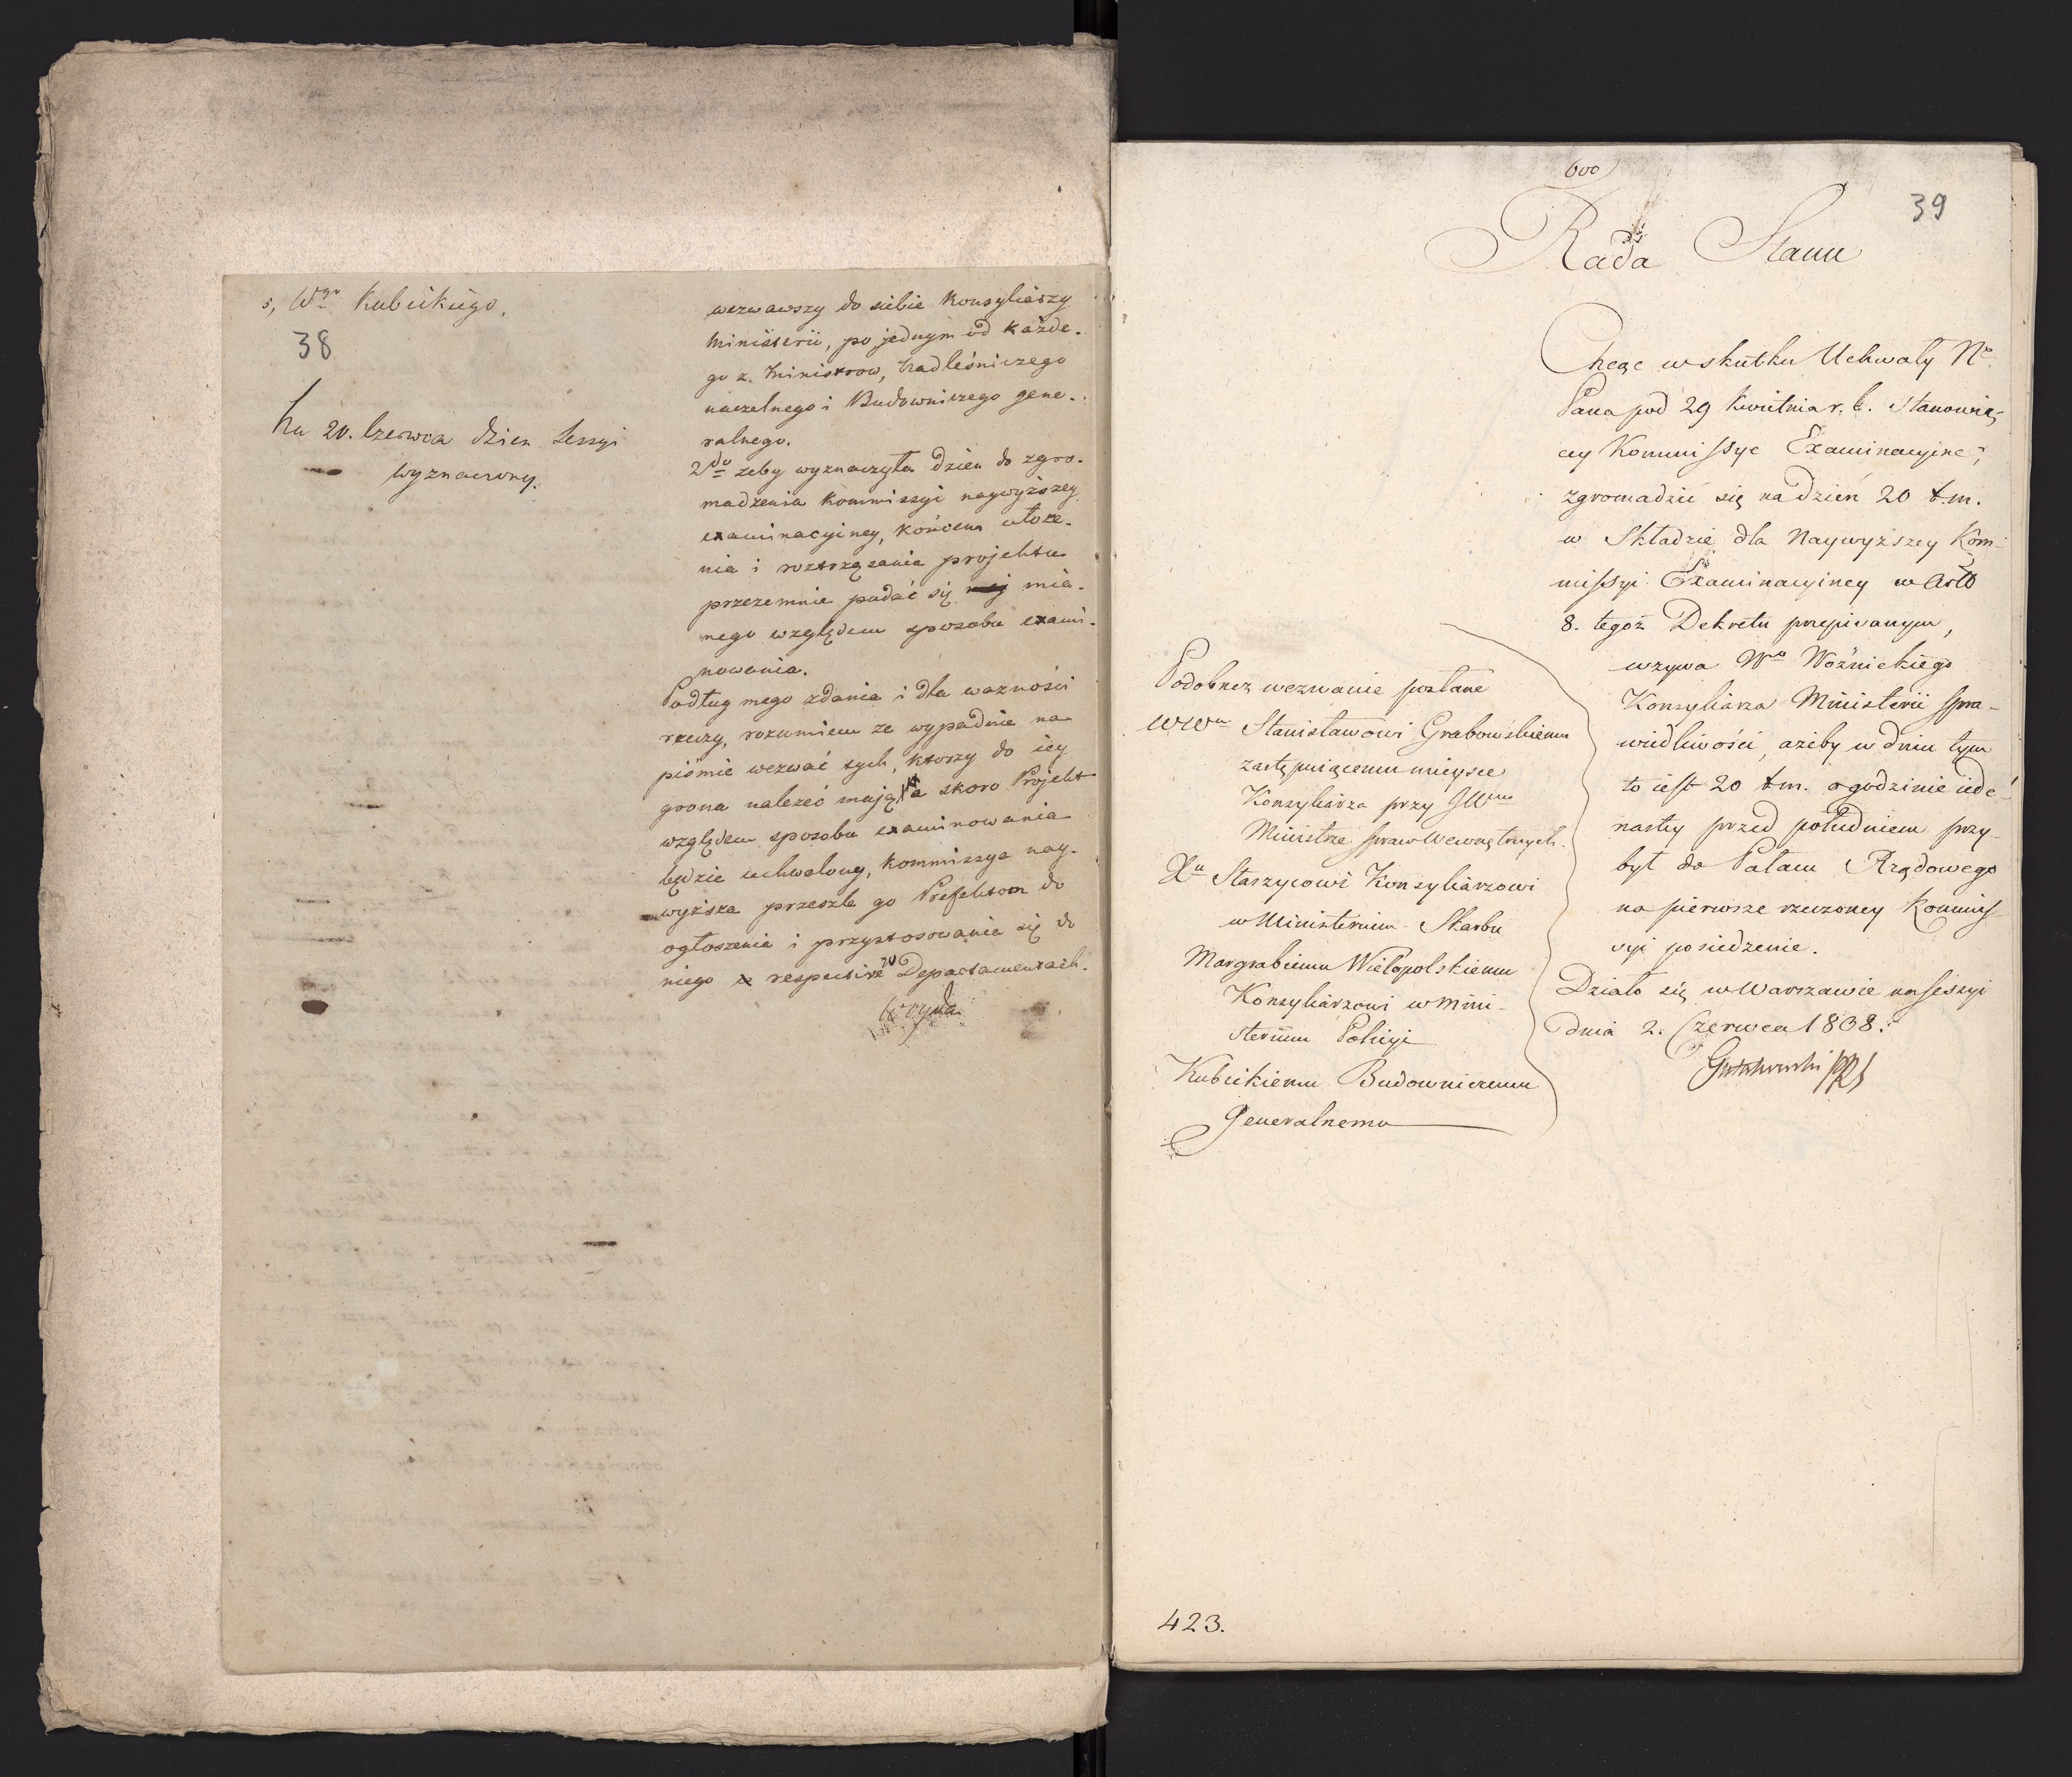 5, Wgo Kubickiego.
38
Na 20. Czerwca dzien Sessyi
wyznaczony.
wezwawszy do siebie Konsyliarzy
Ministerii, po jednym od każde-
go z. Ministrow, Nadleśniczego
naczelnego i Budowniczego gene-
ralnego.
2do żeby wyznaczyła dzien do zgro-
madzenia Kommissyi naywyższey
examinacyiney, końcem ułoże-
nia i roztrząsania projektu
przezemnie podać się mia-
nego względem sposobu exami-
nowania.
Podług mego zdania i dla ważności
rzeczy, rozumiem ze wypadnie na
piśmie wezwać tych, ktorzy do iey
grona należeć mają, a skoro Projekt
względem sposobu examinowania
będzie uchwalony, Kommissya nay-
wyższa przeszle go Prefektom do
ogłoszenia i przystosowania się do
niego w respective Departamentach.
600
39
Rada Stanu
Chcąc w skutku Uchwały No
Pana pod 29 Kwietnia r. b. Stanowią-
cey Kommissye Examinacyine,
zgromadzić się na dzień 20 t.m.
w Składzie dla Naywyższey Kom-
missyi Examinacyiney w Art
8. tegoż Dekretu przepisanym,
wzywa Wo Woźnickiego
Konsyliarza Ministerii Spra-
wiedliwości, ażeby w dniu tym
to iest 20 t.m. o godzinie iede-
nastey przed południem przy-
był do Pałacu Rządowego
na pierwsze rzeczoney Kommis-
syi posiedzenie.
Działo się w Warszawie na Sessyi
dnia 2. Czerwca 1808.
Gutakowski PRS
Podobneż wezwanie posłane
WWu Stanisławowi Grabowskiemu
zastępuiącemu mieysce
Konsyliarza przy JWym
Ministrze Spraw Wewnętrznych.
Xu Staszycowi Konsyliarzowi
w Ministerium Skarbu
Margrabiemu Wielopolskiemu
Konsyliarzowi w Mini-
sterium Policyi
Kubickiemu Budowniczemu
Generalnemu
423.